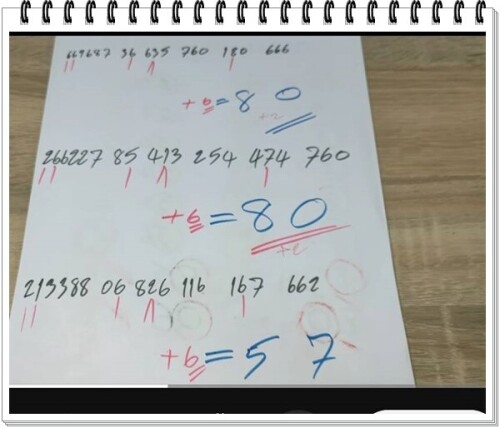 669687 36 635 760 180 666
+6=80
266227 85 413 254 474 760
+6=80
213388 06 826 116 167 662
+6=57